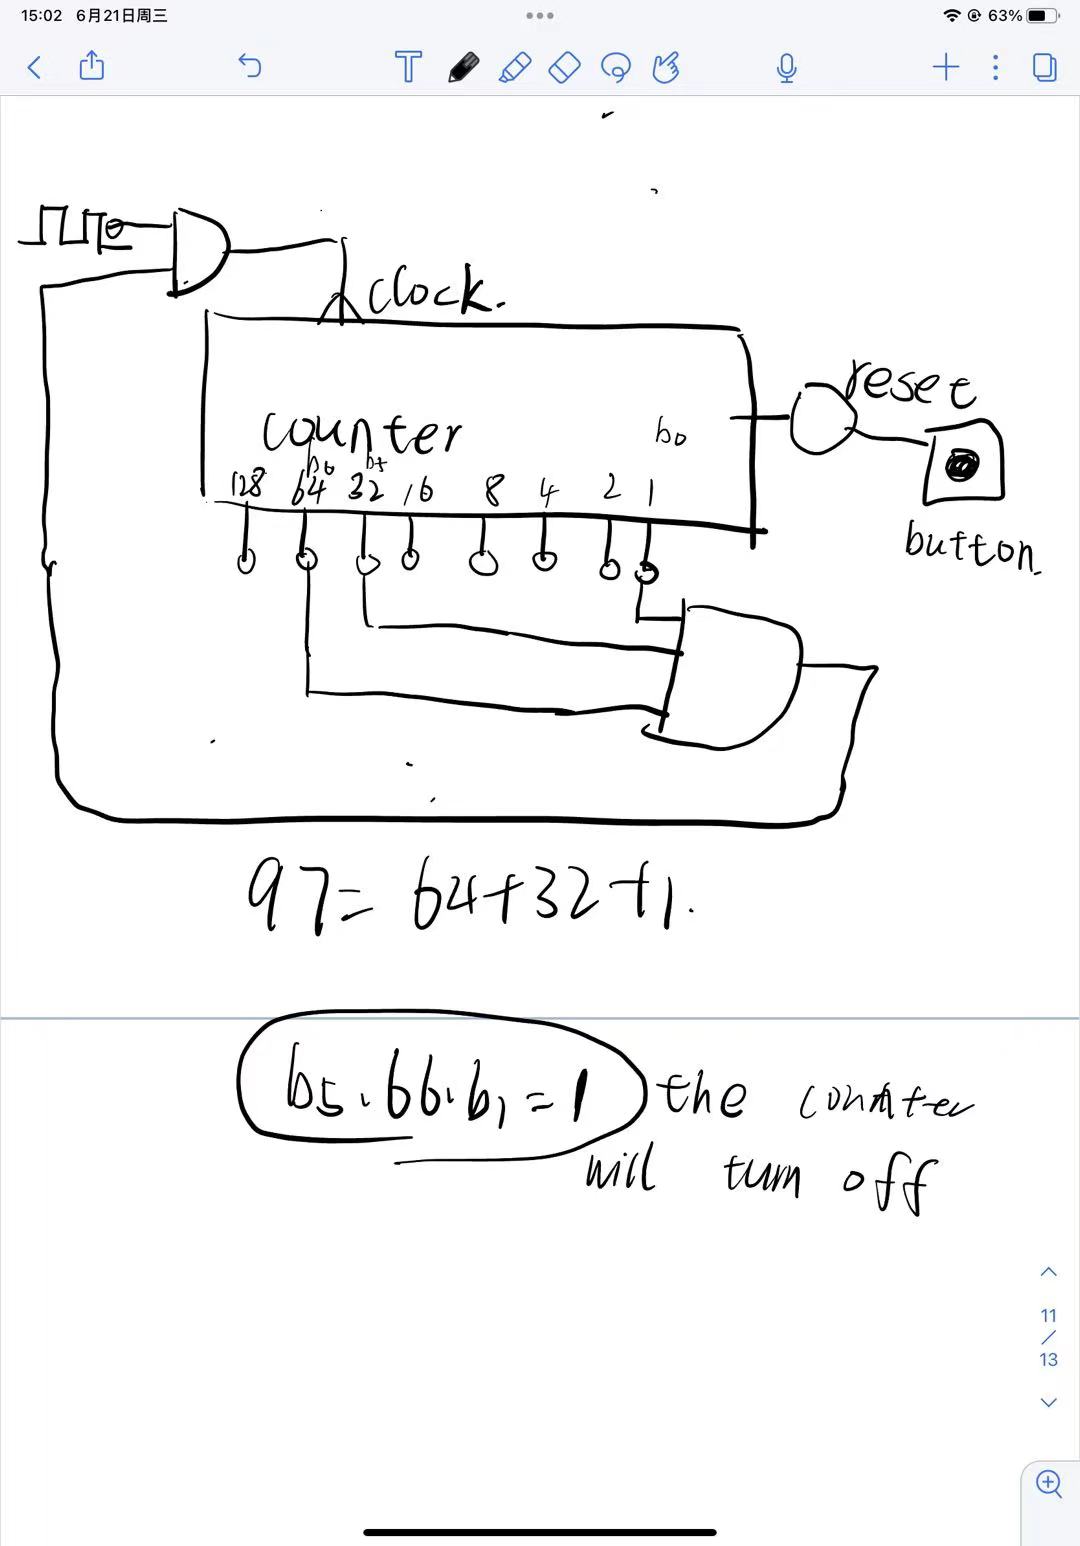 15:02 6月21日周三
63%
clock.
reset
counter
b0
b6 b5
128 64 32 16 8 4 2 1
button.
97= 64+32+1.
b5.b6.b1=1 the counter
will turn off
11
/
13